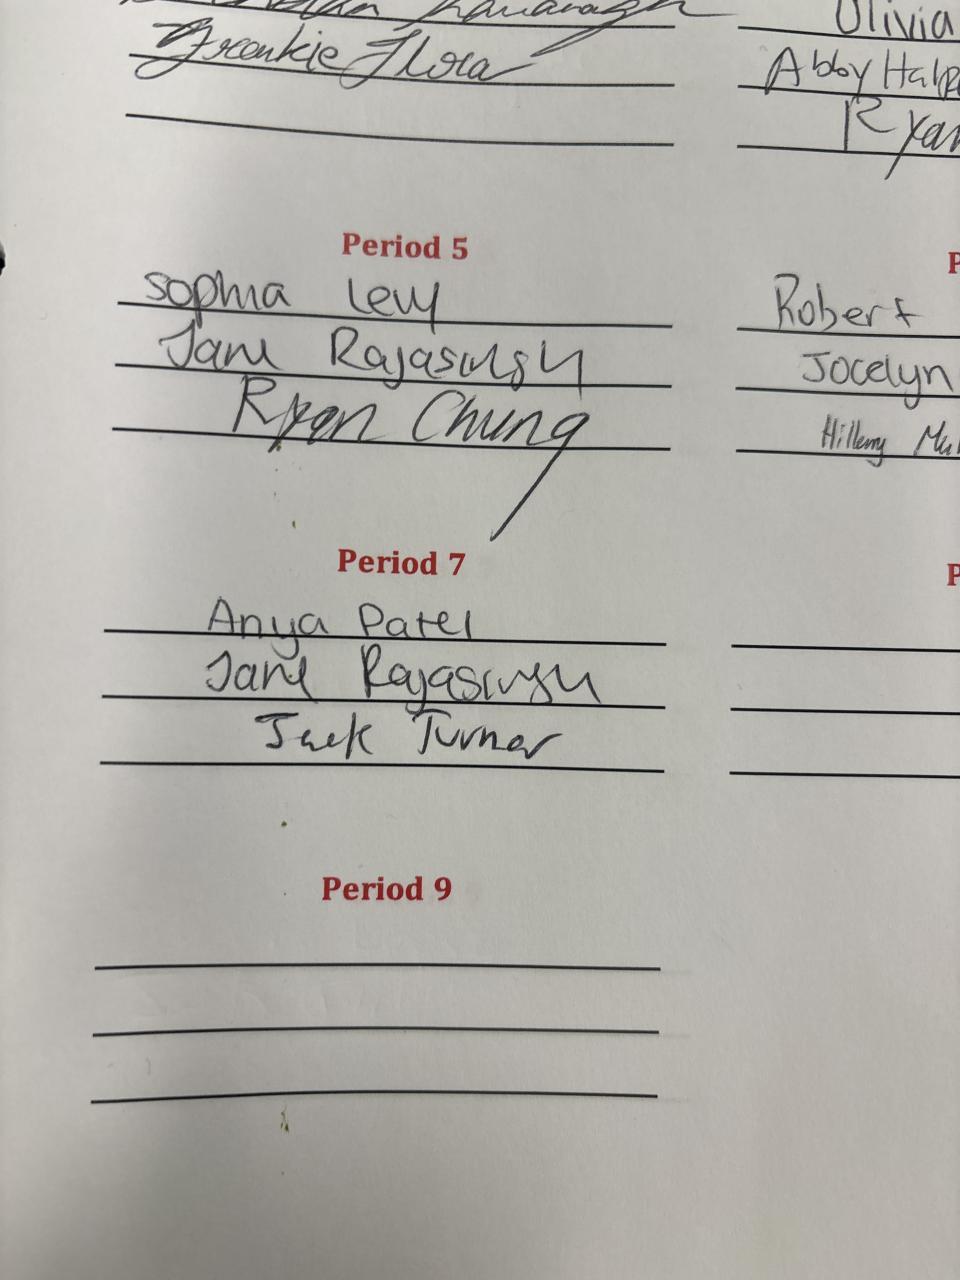 Kavanagh
Frankie Flora
Period 5
Sophia Levy
Jane Rajasingh
Ryan Chung
Period 7
Anya Patel
Jane Rajasingh
Jack Turner
Period 9
Olivia
Abby
Ryan
P
Robert
Jocelyn
P